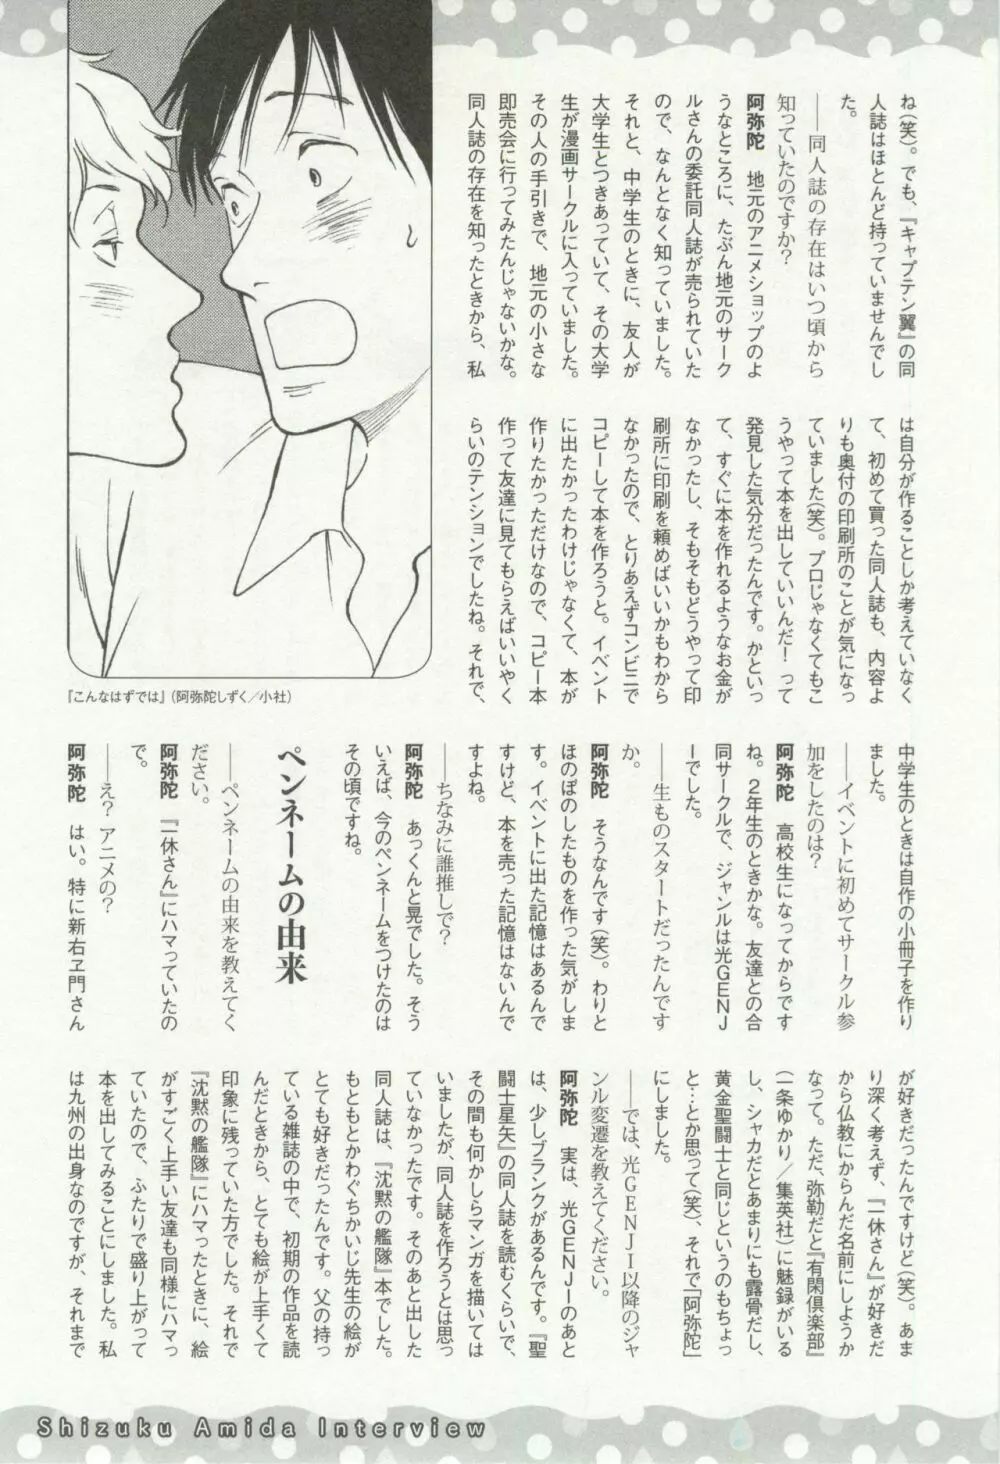 ね（笑）。でも、『キャプテン翼』の同
人誌はほとんど持っていませんでし
た。
――同人誌の存在はいつ頃から
知っていたのですか？
阿弥陀　地元のアニメショップのよ
うなところに、たぶん地元のサーク
ルさんの委託同人誌が売られていた
ので、なんとなく知っていました。
それと、中学生のときに、友人が
大学生とつきあっていて、その大学
生が漫画サークルに入っていました。
その人の手引きで、地元の小さな
即売会に行ってみたんじゃないかな。
同人誌の存在を知ったときから、私
は自分が作ることしか考えていなく
て、初めて買った同人誌も、内容よ
りも奥付の印刷所のことが気になっ
ていました（笑）。プロじゃなくてもこ
うやって本を出していいんだ！　って
発見した気分だったんです。かといっ
て、すぐに本を作れるようなお金が
なかったし、そもそもどうやって印
刷所に印刷を頼めばいいかもわから
なかったので、とりあえずコンビニで
コピーして本を作ろうと。イベント
に出たかったわけじゃなくて、本が
作りたかっただけなので、コピー本
作って友達に見てもらえばいいやく
らいのテンションでしたね。それで、
『こんなはずでは』（阿弥陀しずく／小社）
中学生のときは自作の小冊子を作り
ました。
――イベントに初めてサークル参
加をしたのは？
阿弥陀　高校生になってからです
ね。２年生のときかな。友達との合
同サークルで、ジャンルは光ＧＥＮＪ
Ｉでした。
――生ものスタートだったんです
か。
阿弥陀　そうなんです（笑）。わりと
ほのぼのしたものを作った気がしま
す。イベントに出た記憶はあるんで
すけど、本を売った記憶はないんで
すよね。
――ちなみに誰推しで？
阿弥陀　あっくんと晃でした。そう
いえば、今のペンネームをつけたのは
その頃ですね。
ペンネームの由来
――ペンネームの由来を教えてく
ださい。
阿弥陀　『一休さん』にハマっていたの
で。
――え？　アニメの？
阿弥陀　はい。特に新右ヱ門さん
が好きだったんですけど（笑）。あま
り深く考えず、『一休さん』が好きだ
から仏教にからんだ名前にしようか
なって。ただ、弥勒だと『有閑倶楽部』
（一条ゆかり／集英社）に魅録がいる
し、シャカだとあまりにも露骨だし、
黄金聖闘士と同じというのもちょっ
と…とか思って（笑）、それで「阿弥陀」
にしました。
――では、光ＧＥＮＪＩ以降のジャ
ンル変遷を教えてください。
阿弥陀　実は、光ＧＥＮＪＩのあと
は、少しブランクがあるんです。『聖
闘士星矢』の同人誌を読むくらいで、
その間も何かしらマンガを描いては
いましたが、同人誌を作ろうとは思っ
ていなかったです。そのあと出した
同人誌は、『沈黙の艦隊』本でした。
もともとかわぐちかいじ先生の絵が
とても好きだったんです。父の持っ
ている雑誌の中で、初期の作品を読
んだときから、とても絵が上手くて
印象に残っていた方でした。それで
『沈黙の艦隊』にハマったときに、絵
がすごく上手い友達も同様にハマっ
ていたので、ふたりで盛り上がって
本を出してみることにしました。私
は九州の出身なのですが、それまで
Shizuku Amida Interview